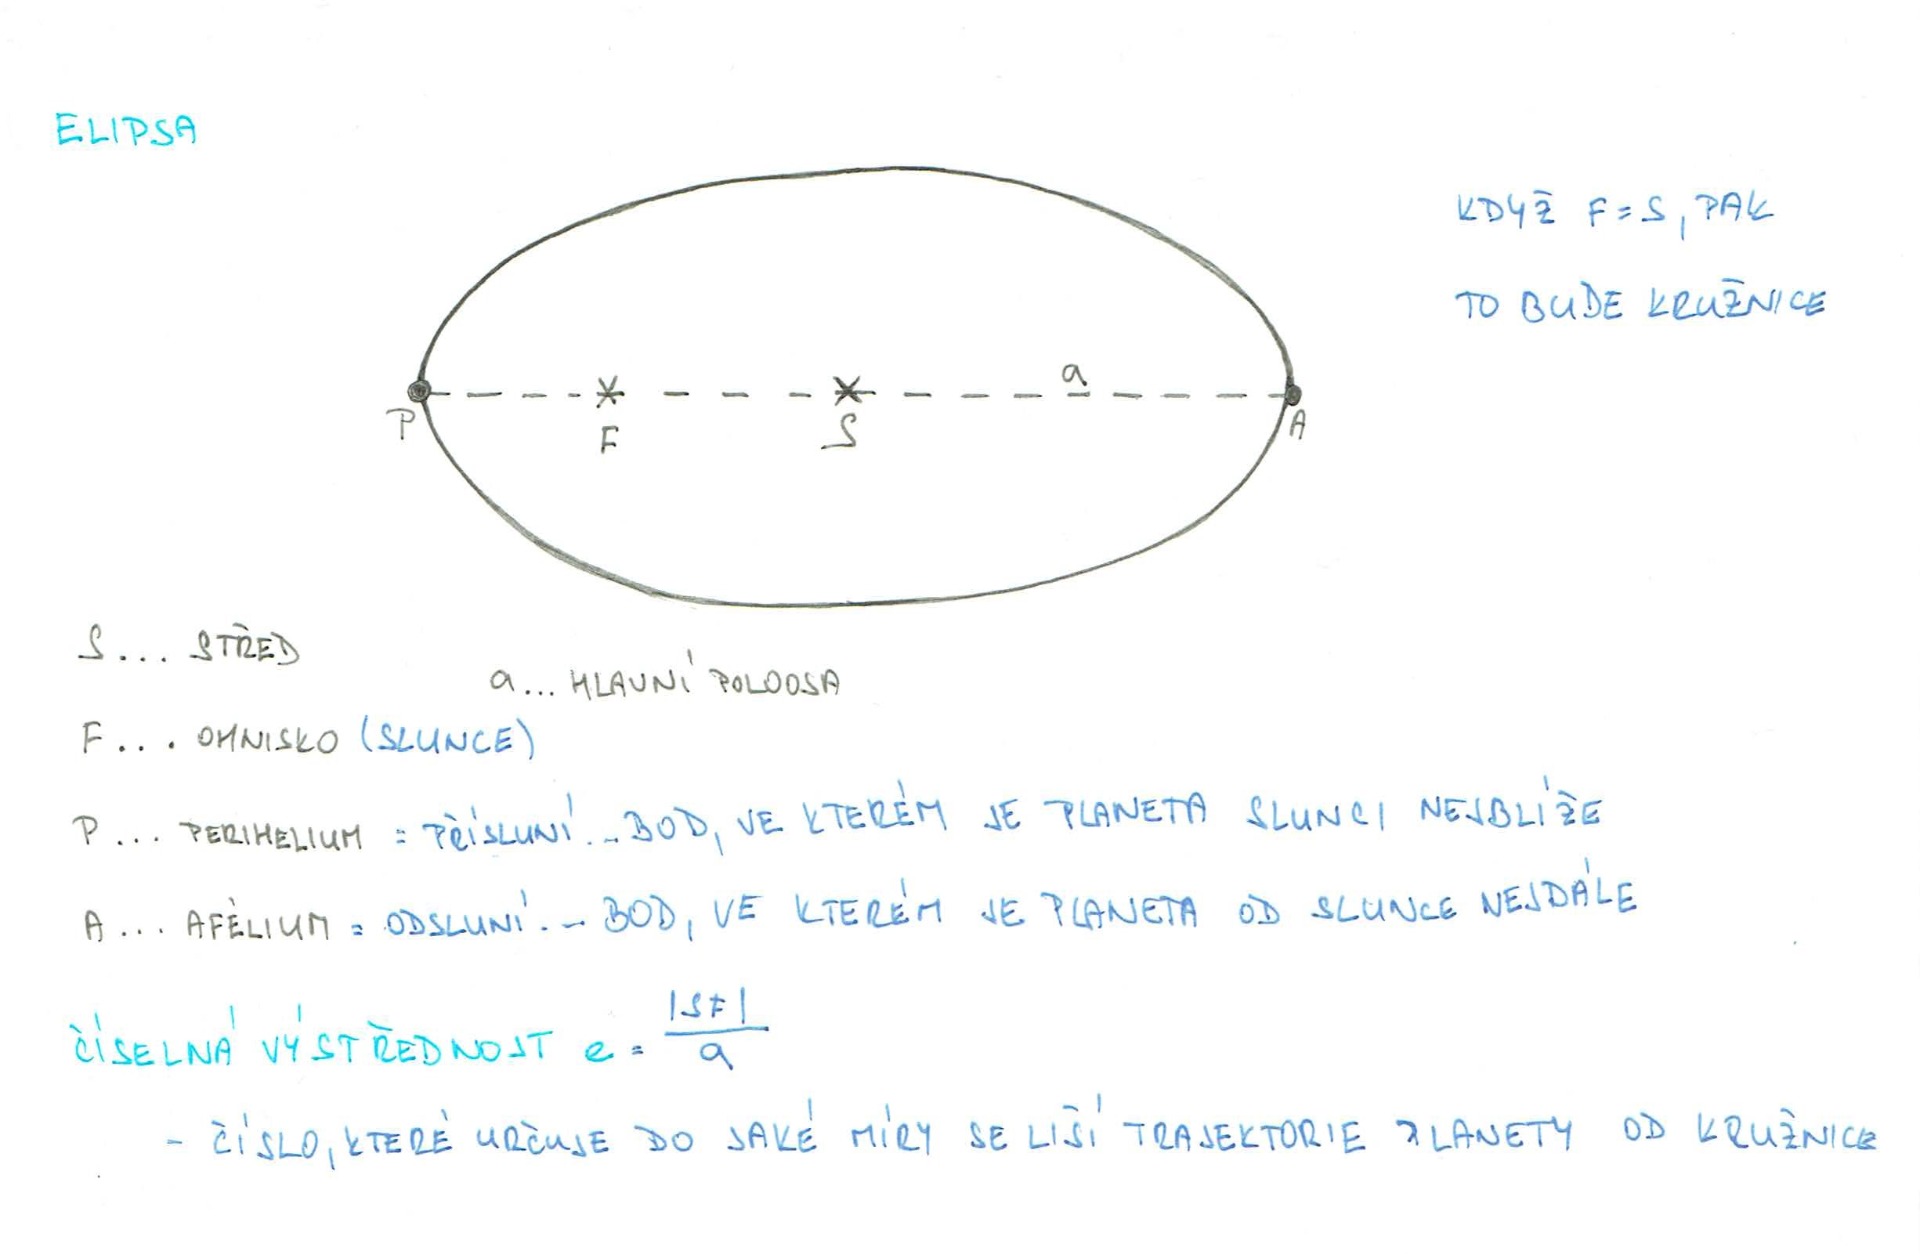 ELIPSA
KDYŽ F=S, PAK
TO BUDE KRUŽNICE
a
P
F
S
A
S... STŘED
a... HLAVNÍ POLOOSA
F... OHNISKO (SLUNCE)
P... PERIHELIUM = PŘÍSLUNÍ... BOD, VE KTERÉM JE PLANETA SLUNCI NEJBLÍŽE
A... AFÉLIUM = ODSLUNÍ... BOD, VE KTERÉM JE PLANETA OD SLUNCE NEJDÁLE
ČÍSELNÁ VÝSTŘEDNOST e = |SF|/a
- ČÍSLO, KTERÉ URČUJE DO JAKÉ MÍRY SE LIŠÍ TRAJEKTORIE PLANETY OD KRUŽNICE